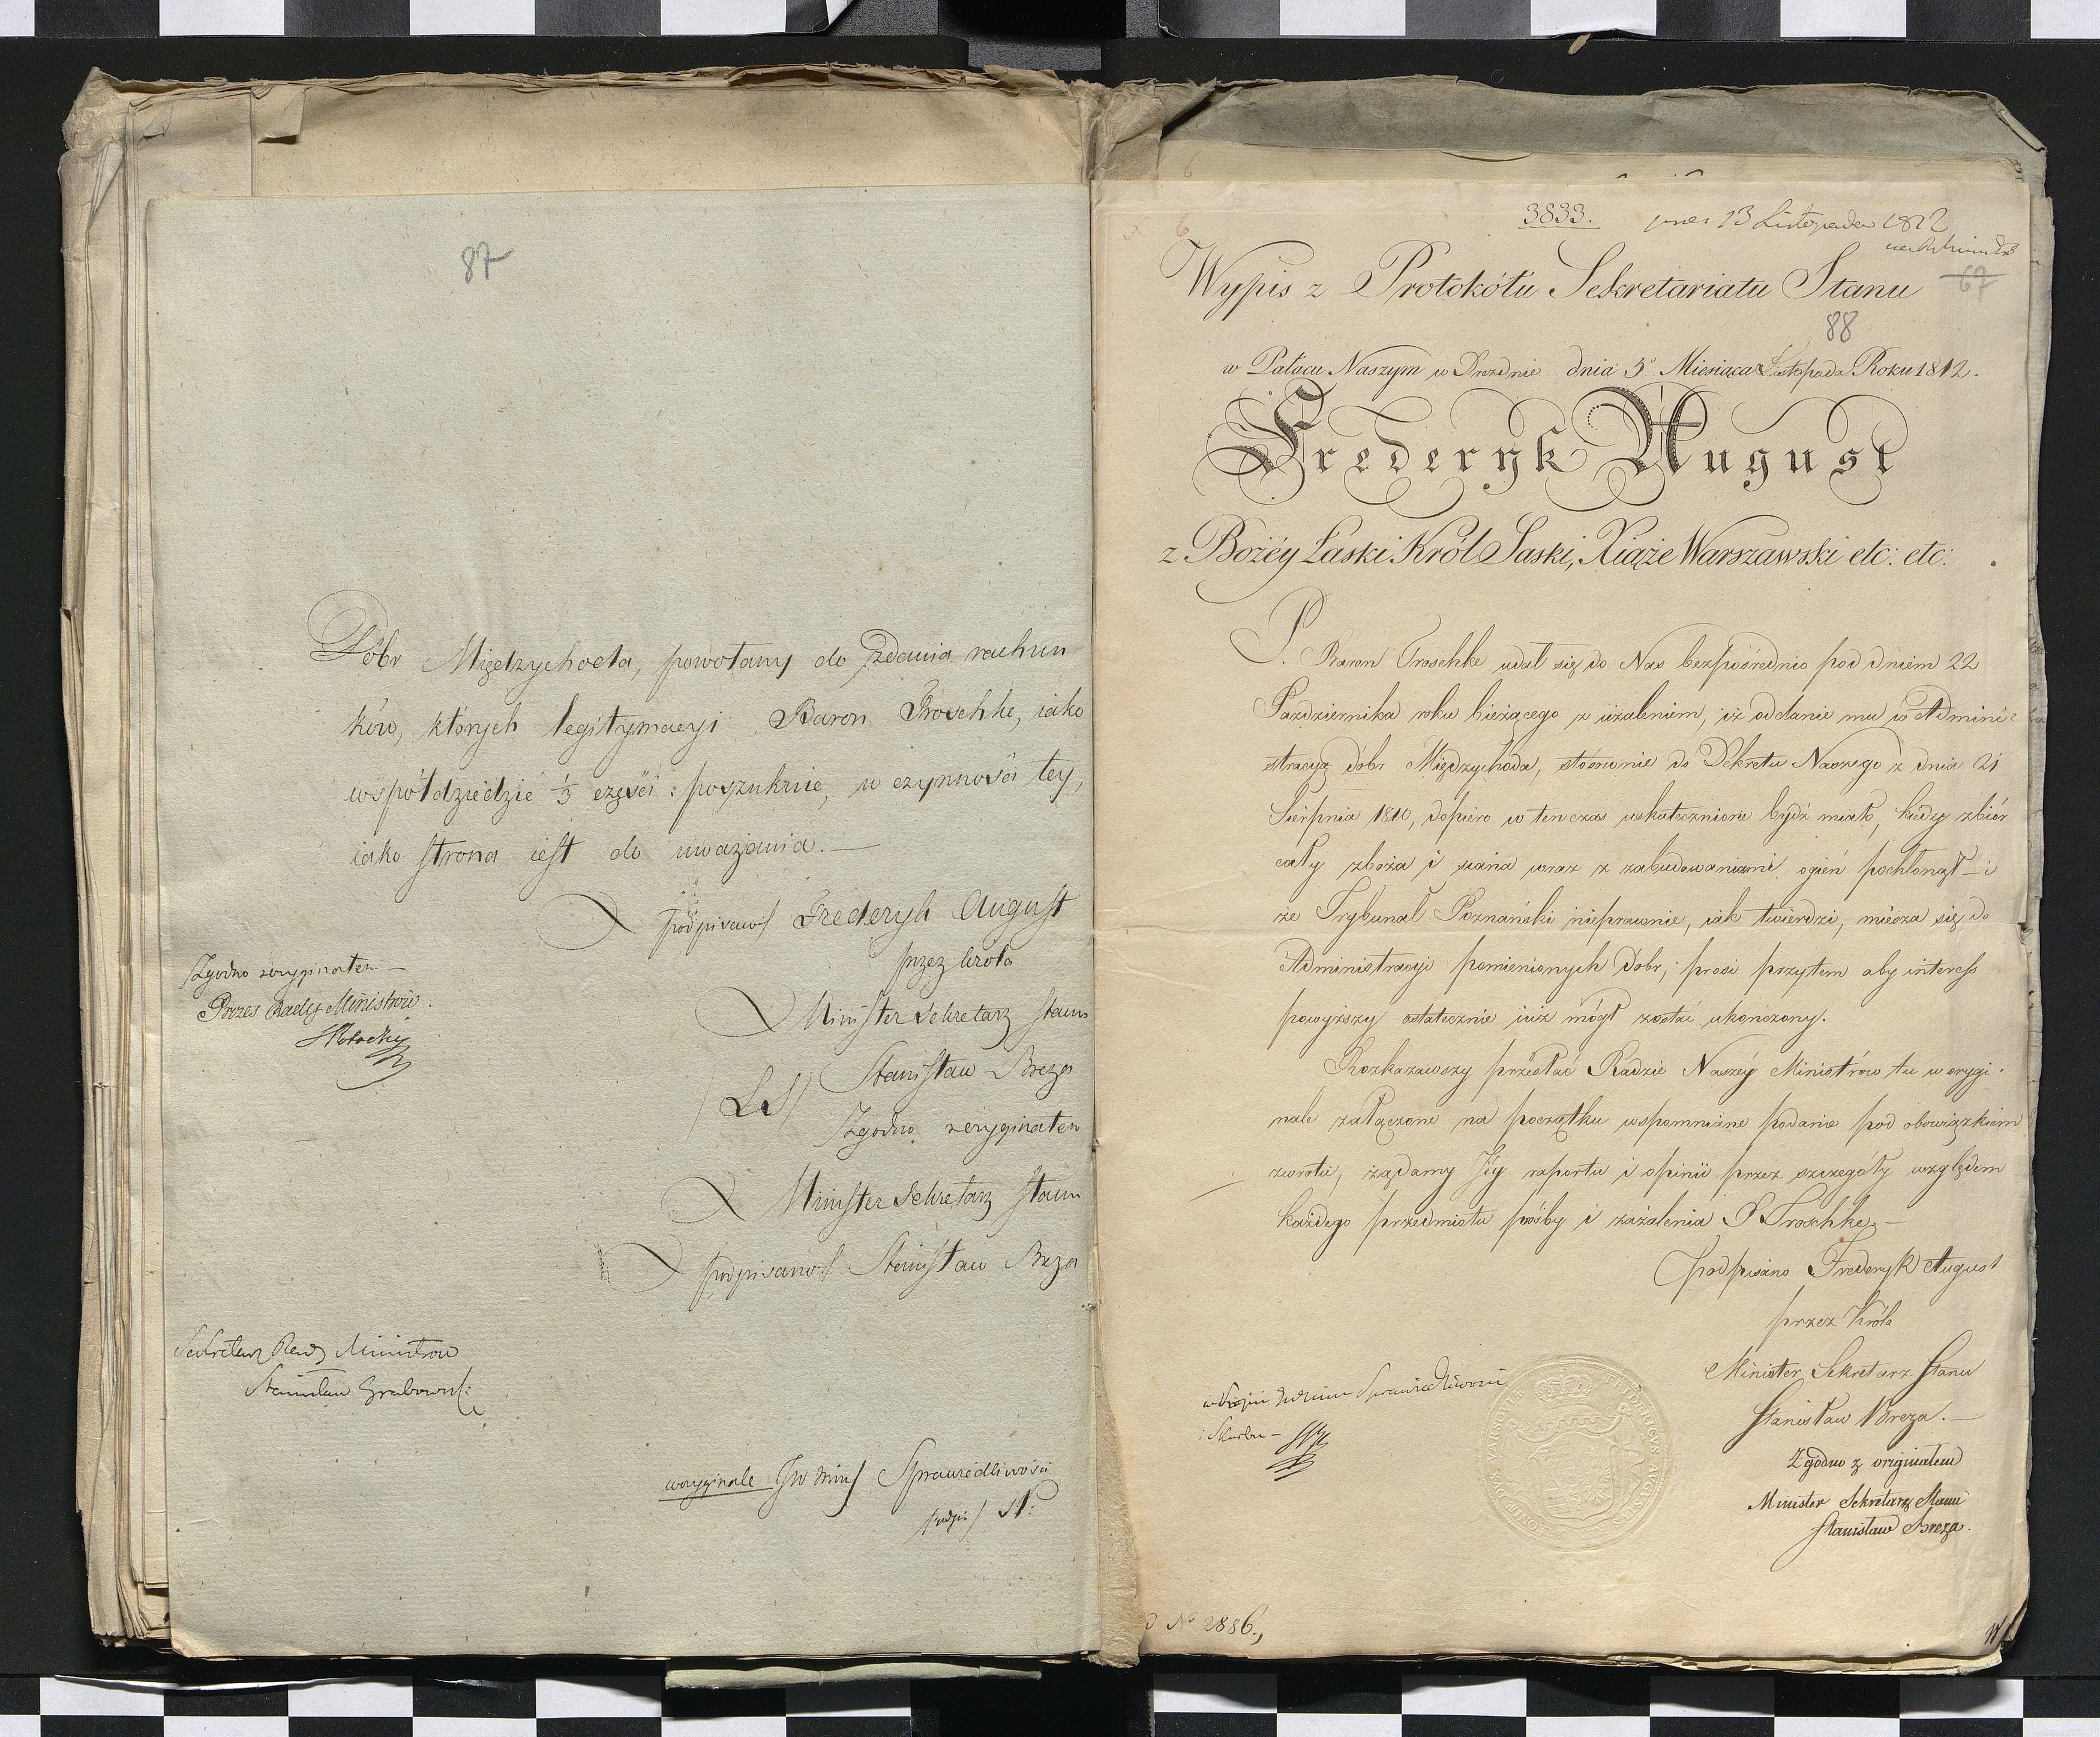 87
Dóbr Międzychoda, powołany do zdania rachun
ków, których legitymacyi Baron Troschke, iako
współdziedzic ⅓ części poszukuie, w czynności tey,
iako strona iest do uważania.—
podpisano/ Frederyk August
przez króla
Minister Sekretarz Stanu
(LS) Stanisław Breza
Zgodno z oryginałem
Minister Sekretarz Stanu
podpisano/ Stanisław Breza
Zgodno z oryginałem—
Prezes Rady Ministrów.
Sekretarz Rady Ministrów
Stanisław Grabowski
w oryginale JW Min/ Sprawiedliwości
podpis/
3833. 13 Listopada 1812
67
Wypis z Protokółu Sekretariatu Stanu
88
w Pałacu Naszym w Dreźnie dnia 5º Miesiąca Listopada Roku 1812.
Frederyk August
z Bożéy Łaski Król Saski, Xiąże Warszawski etc: etc:
P. Baron Troschke udał się do Nas bezpośrednio pod dniem 22
Października roku bieżącego z użaleniem, iż oddanie mu w Admini=
stracyą dóbr Międzychoda, stósownie do Dekretu Naszego z dnia 21
Sierpnia 1810, dopiero w ten czas uskutecznione bydź miało, kiedy zbiór
cały zboża i siana wraz z zabudowaniami ogień pochłonął — i
że Trybunał Poznański nieprawnie, iak twierdzi, miesza się do
Administracyi pomienionych dóbr; prosi przytem aby interess
powyższy ostatecznie iuż mógł zostać ukończony.
Rozkazawszy przesłać Radzie Naszéy Ministrów tu w orygi-
nale załączone na początku wspomniane podanie pod obowiązkiem
zwrotu, żądamy Jéy raportu i opinii przez szczegóły względem
każdego przedmiotu prośby i zażalenia P. Troschke.—
(podpisano Frederyk August
przez Króla
Minister Sekretarz Stanu
Stanisław Breza.—
Zgodno z originałem
Minister Sekretarz Stanu
Stanisław Breza.
Sprawiedliwości
i Skarbu—
No 2886.